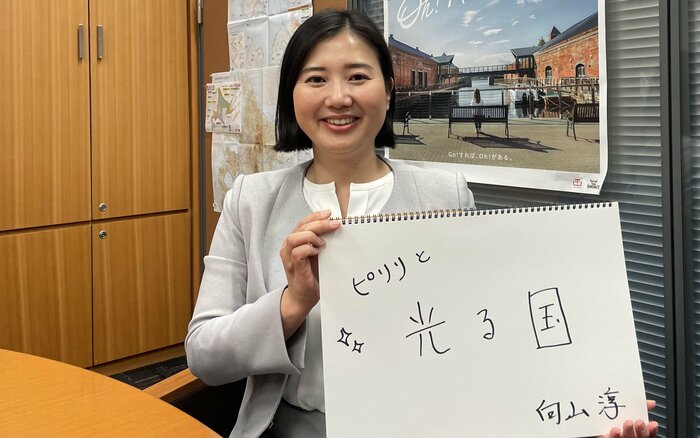 Oh!
Go!すれば、Oh!がある。
ピリリと
光る国
向山 淳